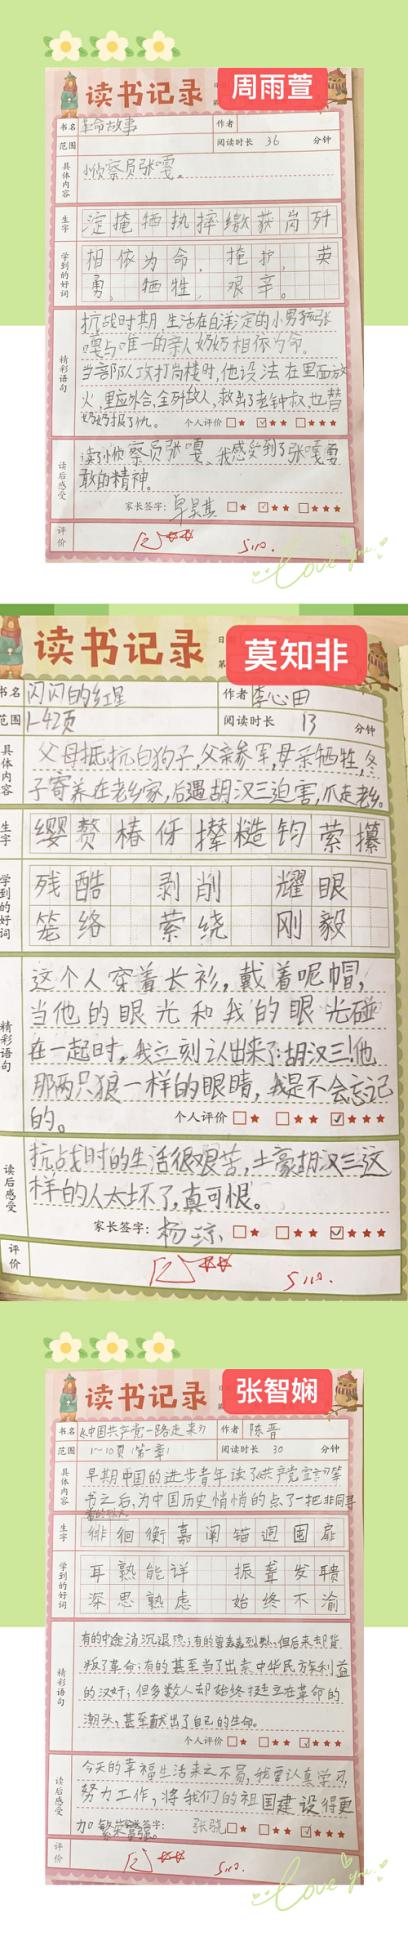 读书记录
周雨萱
书名 革命故事 作者
范围 阅读时长 36 分钟
具体内容 小侦察员张嘎。
生字 淀 掩 牺 执 摔 缴 获 岗 歼
学到的好词 相依为命, 掩护, 英
勇。牺牲, 艰辛。
精彩语句 抗战时期,生活在白洋淀的小男孩张
嘎与唯一的亲人奶奶相依为命。
当部队攻打岗楼时,他设法在里面放
火,里应外合,全歼敌人,救出了老钟叔也替
奶奶报了仇。 个人评价 □★ ☑★★ □★★★
读后感受 读了小侦察员张嘎、我感受到了张嘎勇
敢的精神。
家长签字: □★ ☑★★ □★★★
评价
Love you
读书记录
莫知非
书名 闪闪的红星 作者 李心田
范围 1-42页 阅读时长 13 分钟
具体内容 父母抵抗白狗子,父亲参军,母亲牺牲,冬
子寄养在老乡家,后遇胡汉三迫害,爪走老乡。
生字 缨 赘 椿 伢 撵 糙 钧 萦 攥
学到的好词 残酷 剥削 耀眼
笼络 萦绕 刚毅
精彩语句 这个人穿着长衫,戴着呢帽,
当他的眼光和我的眼光碰
在一起时,我立刻认出来了:胡汉三!他
那两只狼一样的眼睛,我是不会忘记
的。 个人评价 □★ □★★ ☑★★★
读后感受 抗战时的生活很艰苦,土豪胡汉三这
样的人太坏了,真可恨。
家长签字: 杨琼 □★ □★★ ☑★★★
评价
读书记录
张智娴
书名 《中国共产党一路走来》 作者 陈晋
范围 1~10页(第一章) 阅读时长 30 分钟
具体内容 早期中国的进步青年读了《共产党宣言》等
书之后,为中国历史悄悄的点了一把非同寻
生字 徘 徊 衡 嘉 阐 锚 迥 囿 扉
学到的好词 耳熟能详 振聋发聩
深思熟虑 始终不渝
精彩语句 有的中途消沉退隐;有的曾轰轰烈烈,但后来却背
叛了革命;有的甚至当了出卖中华民族利益
的汉奸;但多数人却始终挺立在革命的
潮头,甚至献出了自己的生命。
个人评价 □★ □★★ ☑★★★
读后感受 今天的幸福生活来之不易,我要认真学习,
努力工作,将我们的祖国建设得更
加繁荣富强。 家长签字: 张骁 □★ □★★ ☑★★★
评价
Love you